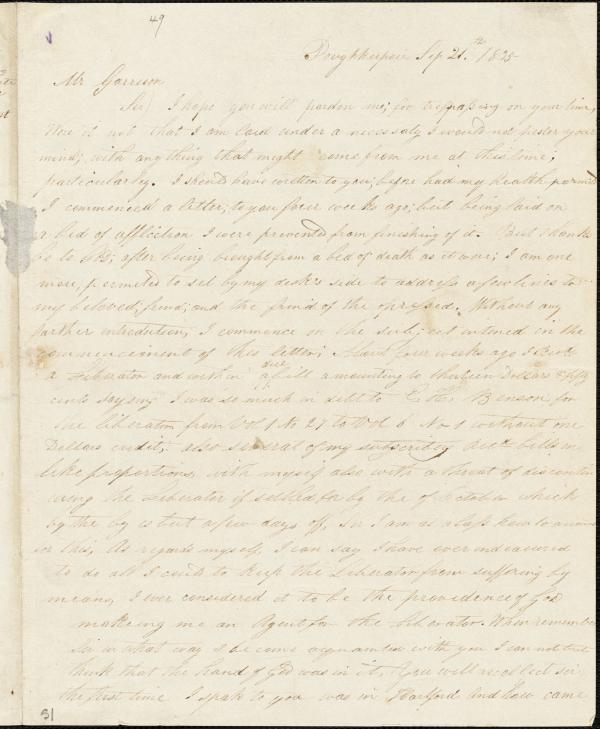 49
Poughkeepsie Sep 21.st 1835
Mr Garrison
Sir) I hope you will pardon me; for trespassing on your time,
Were it not that I am laid under a necessity I would not pester your
mind; with any thing that might come from me at this time;
particularly. I should have written to you; before had my health permit
I commenced a letter; to you four weeks ago; but being laid on
a bed of affliction I were prevented from finishing of it. But thanks
be to God; after being brought from a bed of death as it were; I am one
more, permited to set by my desk side to address a few lines to
my beloved; friend; and the friend of the opressed. Without any
farther introduction, I commence on the subject intened in the
commencement of this letter; About four weeks ago I Recd
a Liberator and with in a Bill amounting to thirteen Dollars & fifty
cents saying I was so much in debt to Benson for
the Liberator from Vol 1 No 27 to Vol 6 No 1 without one
Dollars credit; also several of my subscribers bills in
like proportions, with myself also with a threat of discontin
uing the Liberator if settled for by the of October which
by the by is but a few days off, Sir I am at a loss how to
for this, As regards myself, I can say I have ever indeavured
to do all I could to keep the Liberator from suffering by
means, I ever considered it to be the providence of God
makeing me an Agent for the Liberator. When remember
Sir in what way I become acquainted with you I can not but
think that the hand of God was in it, You will recollect sir
the first time I speak to you was in Hartford and how came
51